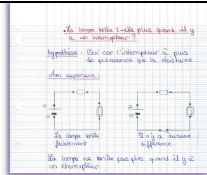 • La lampe brille t-elle plus quand il y
a un interrupteur ?
hypothèse : Oui car l'interrupteur a plus
de puissance que la résistance.
Mon expérience :
La lampe brille
faiblement
Il n'y a aucune
différence.
La lampe ne brille pas plus quand il y a
un interrupteur